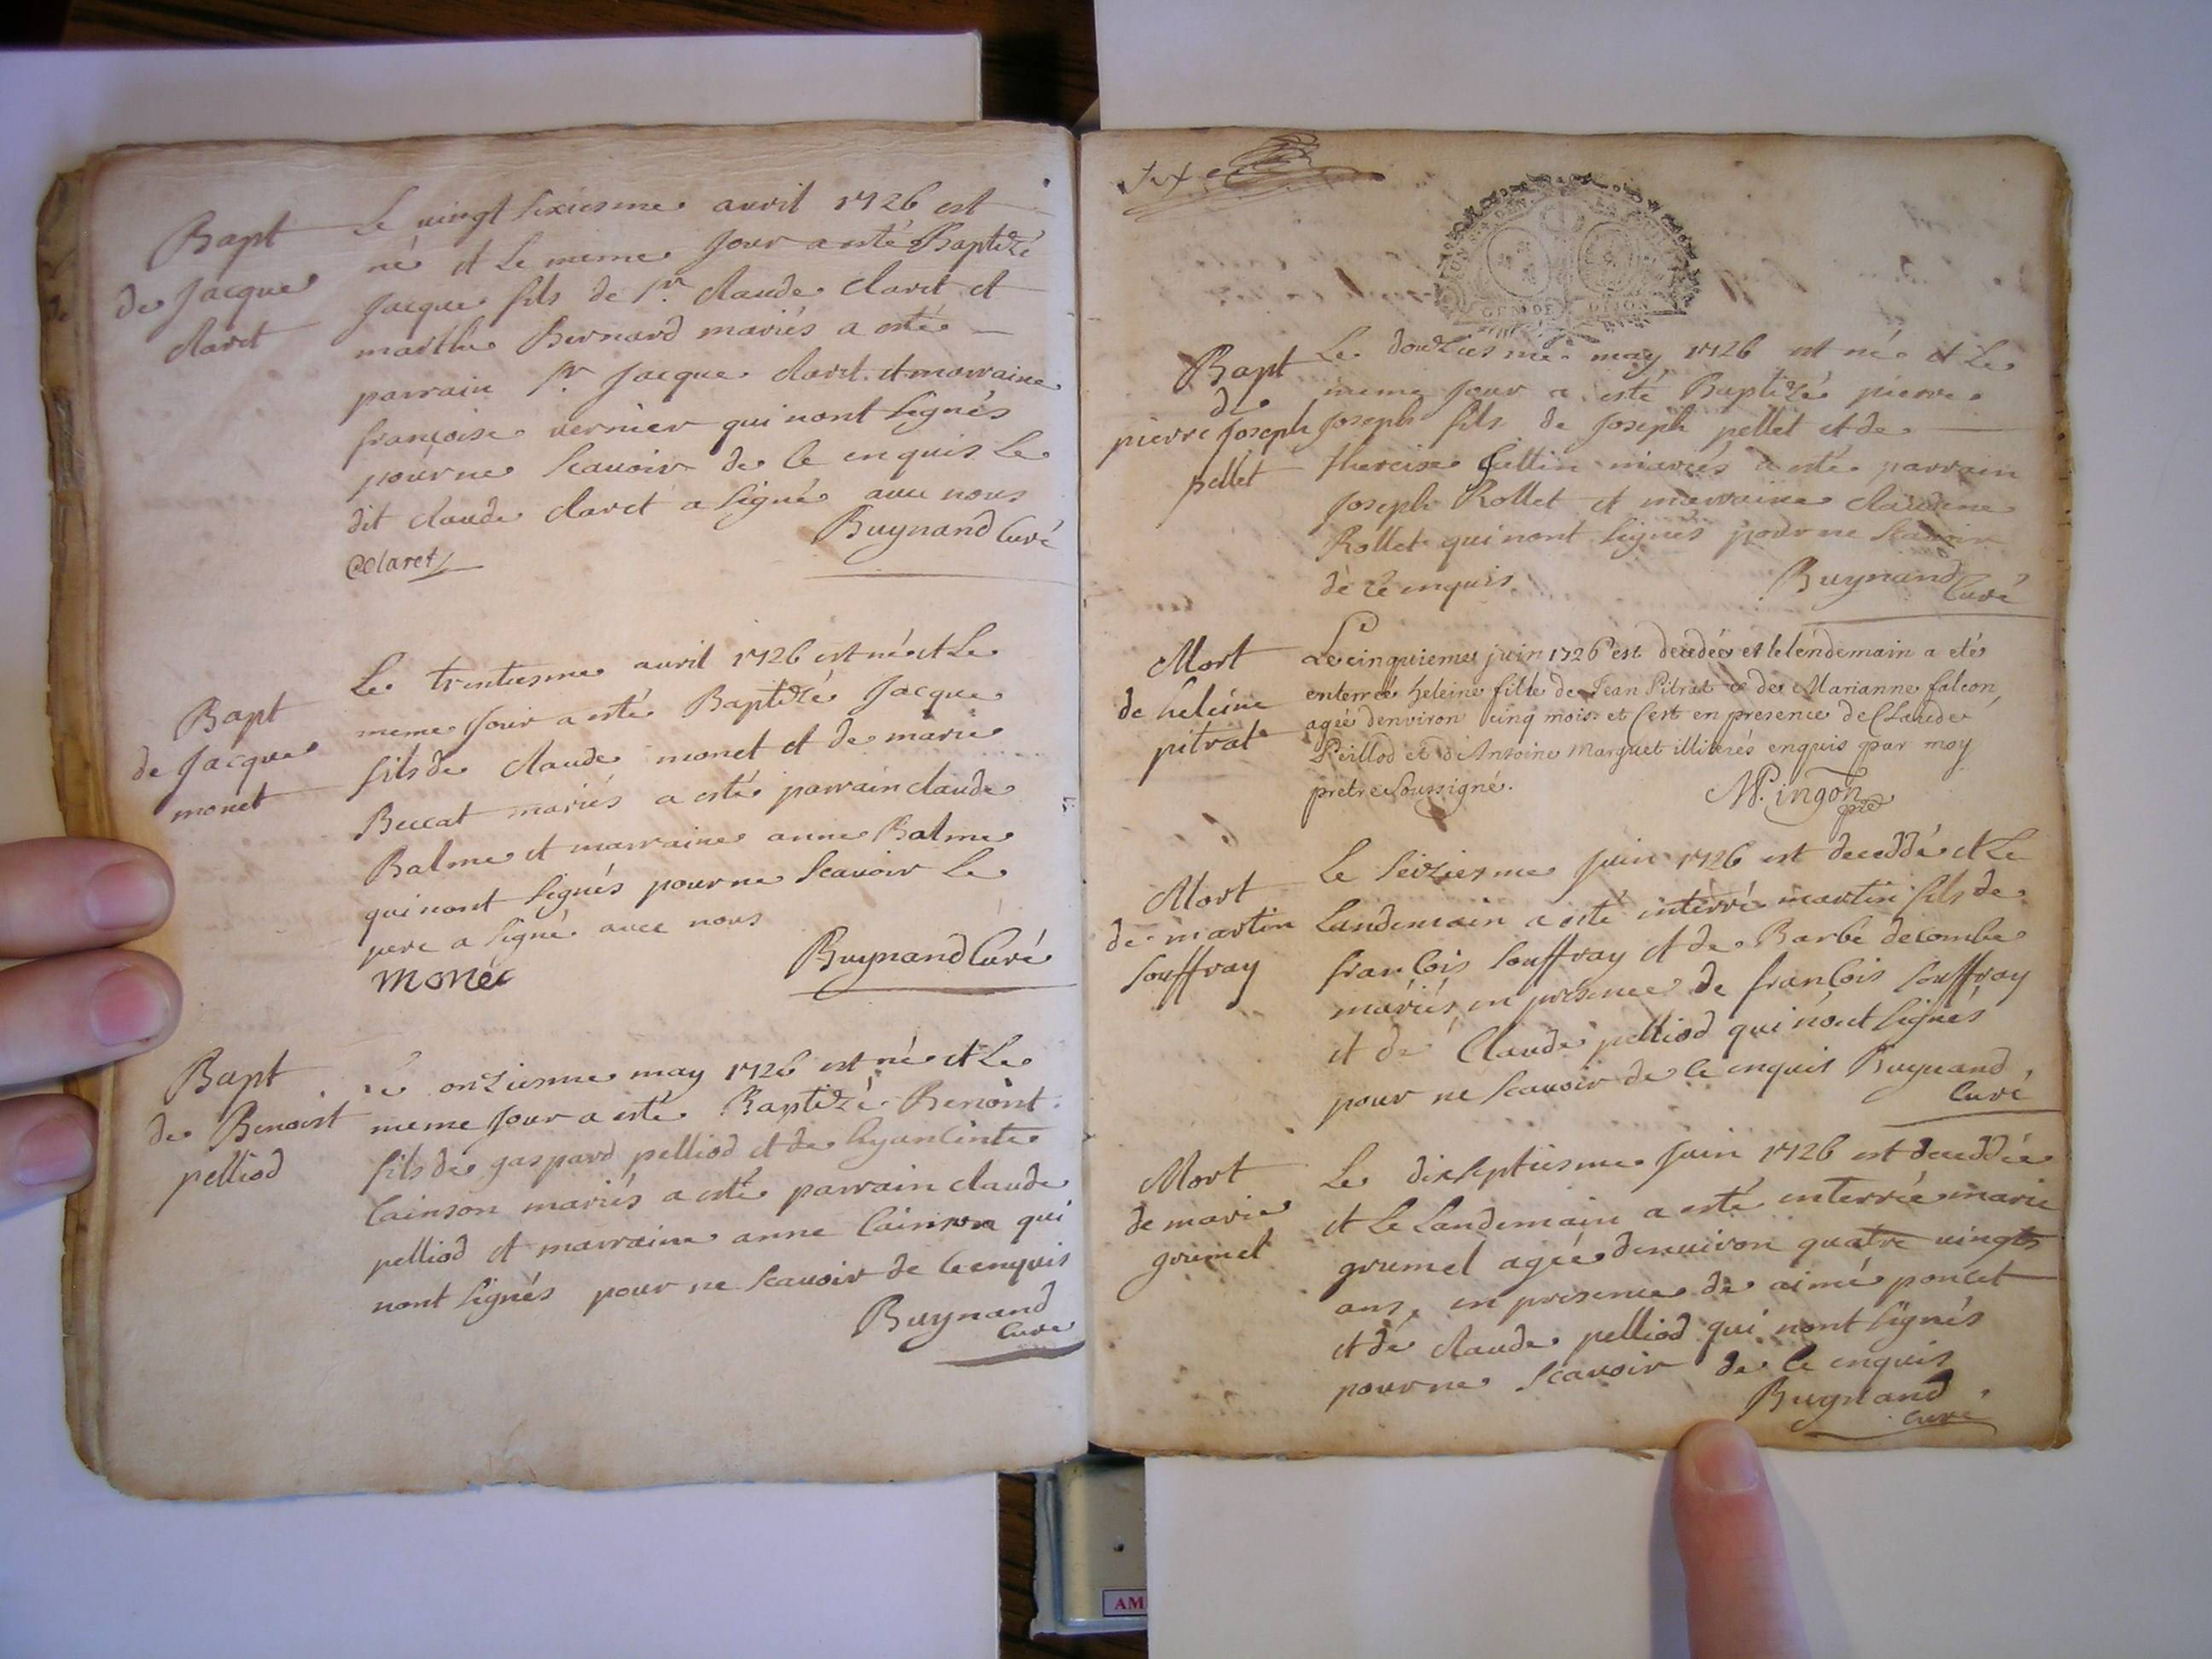 Bapt
de Jacque
claret
Le vingt sixiesme auril 1726 est
né et Le meme Jour a esté Baptizé
Jacque fils de Sr. claude claret et
marthe Bernard mariés a esté
parrain Sr Jacque claret et marraine
françoise vernier qui nont signés
pour ne scauoir de ce enquis Le
dit claude claret a signé auec nous
Buynand Curé
Cclaret
Bapt
de Jacque
monet
Le trentiesme auril 1726 est né et Le
meme Jour a esté Baptizé Jacque
fils de claude monet et de marie
Beccat mariés a esté parrain claude
Balme et marraine anne Balme
qui nont signés pour ne scauoir Le
pere a signé auec nous
Buynand Curé
monet
Bapt
de Benoist
pelliod
Le onziesme may 1726 est né et Le
meme Jour a esté Baptizé Benoint
fils de gaspard pelliod et de hyancinte
Cainson mariés a esté parrain claude
pelliod et marraine anne Cainson qui
nont signés pour ne scauoir de ce enquis
Buynand
Curé
GEN DE DIJON
Bapt
de
pierre Joseph
pellet
Le douziesme may 1726 est né et Le
meme Jour a esté Baptizé pierre
Joseph fils de Joseph pellet et de
thereise mariés a esté parrain
Joseph Rollet et marraine claudine
Rollet qui nont signés pour ne scauoir
de ce enquis
Buynand
Curé
Mort
de heleine
pitrat
Le cinquieme juin 1726 est decedée et le lendemain a eté
enterrée heleine fille de Jean Pitrat & de Marianne falcon
agée denviron cinq mois et cest en presence de Claude
Peillod et d'Antoine Marguet illiterés enquis par moy
pretre soussigné.
M. Pingon
ptre
Mort
de martin
souffray
Le seiziesme Juin 1726 est deceddé et Le
Landemain a esté interré martin fils de
françois souffray et de Barbe decombe
mariés en presence de françois souffray
et de Claude pelliod qui nont signés
pour ne scauoir de ce enquis Buynand
Curé
Mort
de marie
grumel
Le dixseptiesme Juin 1726 est deceddée
et Le Landemain a esté enterrée marie
grumel agée denuiron quatre uingts
ans, en presence de aimé poncet
et de claude pelliod qui nont signés
pour ne scauoir de ce enquis
Buynand
Curé
AM